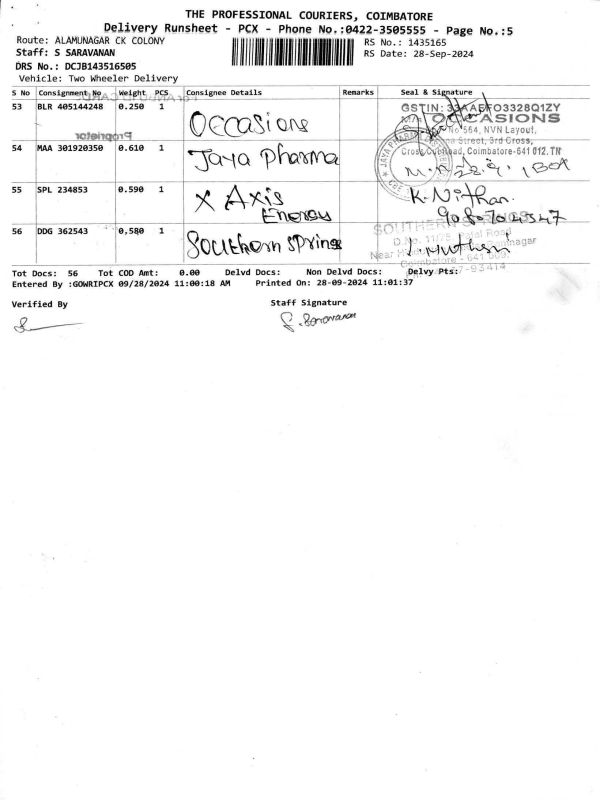 THE PROFESSIONAL COURIERS, COIMBATORE
Delivery Runsheet - PCX - Phone No.:0422-3505555 - Page No.:5
Route: ALAMUNAGAR CK COLONY RS No.: 1435165
Staff: S SARAVANAN RS Date: 28-Sep-2024
DRS No.: DCJB143516505
Vehicle: Two Wheeler Delivery
S No Consignment No Weight PCS Consignee Details Remarks Seal & Signature
53 BLR 405144248 0.250 1 Occasions
GSTIN: 33AAEFO3328Q1ZY
OCCASIONS
No 564, NVN Layout,
Street, 3rd Cross,
Coimbatore-641 012. TN
Proprietor
54 MAA 301920350 0.610 1 Jaya Pharma
JAYA PHARMA
1 BOX
55 SPL 234853 0.590 1 X Axis
Energy
K. Nithan.
9087044547
56 DDG 362543 0,580 1 Southern Spring
SOUTHERN
Tot Docs: 56 Tot COD Amt: 0.00 Delvd Docs: Non Delvd Docs: Delvy Pts:
Entered By :GOWRIPCX 09/28/2024 11:00:18 AM Printed On: 28-09-2024 11:01:37
Verified By Staff Signature
S. Saravanan